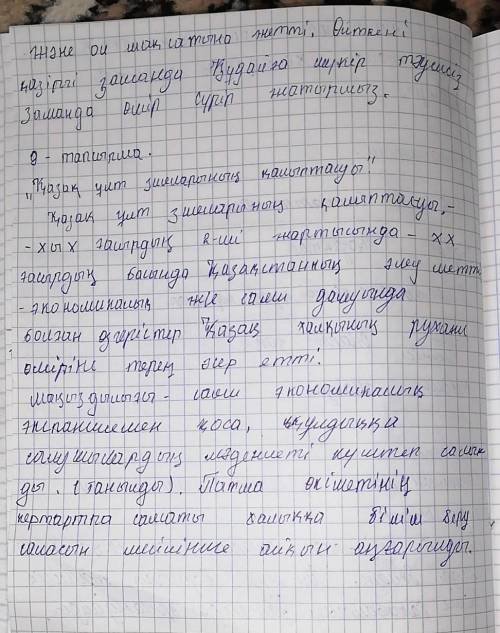 және ол мақсатына жетті. Өйткені
қазіргі заманда Құдайға шүкір тәуелсіз
заманда өмір сүріп жатырмыз.
9 - тапсырма.
"Қазақ ұлт зиялыларының қалыптасуы"
Қазақ ұлт зиялыларының қалыптасуы, -
- ХІХ ғасырдың 2-ші жартысында - ХХ
ғасырдың басында Қазақстанның әлеуметтік
- экономикалық және саяси дамуында
болған өзгерістер Қазақ халқының рухани
өміріне терең әсер етті.
Маңыздылығы - саяси экономикалық
экспансиямен қоса, құлдыққа
салушылардың мәдениеті күштеп салын
ды. (танылды). Патша өкіметінің
кертартпа саясаты халыққа білім беру
саласын мейлінше айқын аңғарылды.